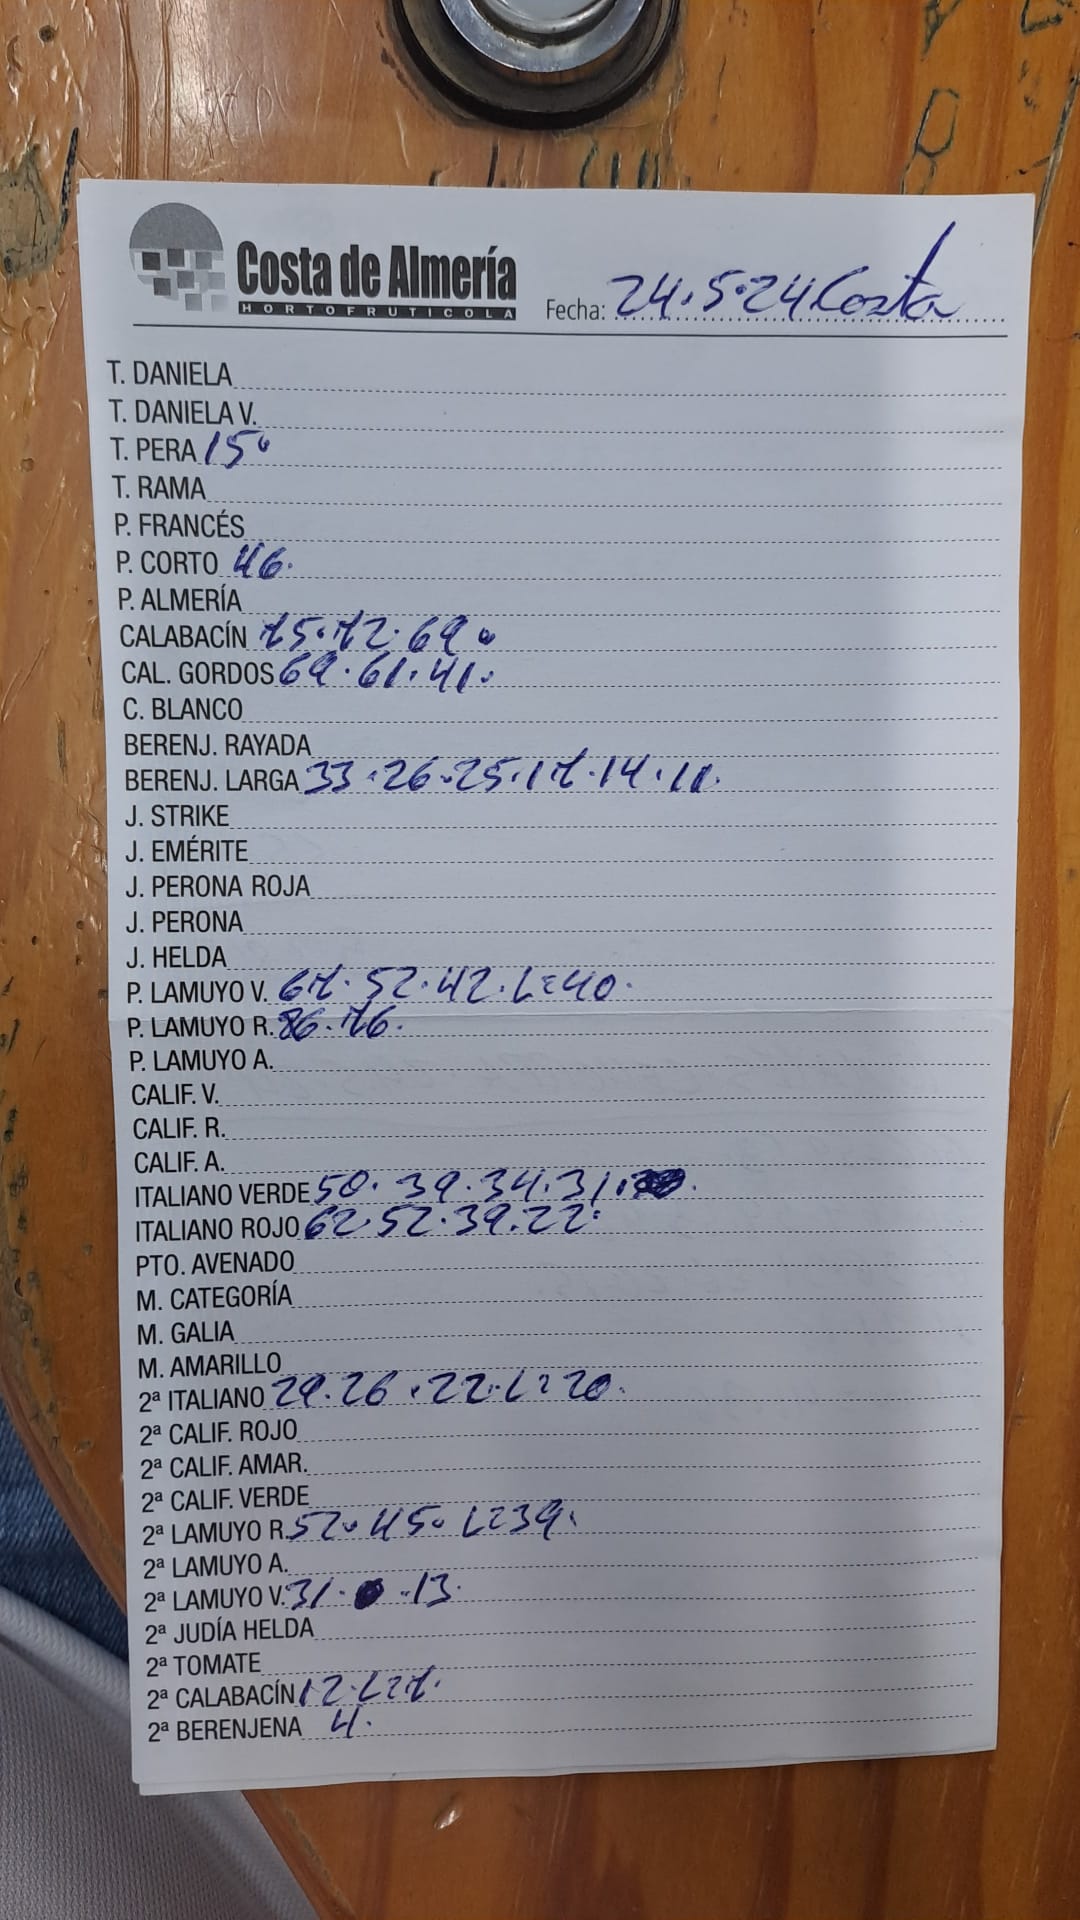 Costa de Almería
HORTOFRUTICOLA
Fecha: 24.5.24 Costa
T. DANIELA
T. DANIELA V.
T. PERA 15.
T. RAMA
P. FRANCÉS
P. CORTO 46.
P. ALMERÍA
CALABACÍN 75.72.69.
CAL. GORDOS 69.61.41.
C. BLANCO
BERENJ. RAYADA
BERENJ. LARGA 33.26.25.17.14.11.
J. STRIKE
J. EMÉRITE
J. PERONA ROJA
J. PERONA
J. HELDA
P. LAMUYO V. 67.52.42.L=40.
P. LAMUYO R. 86.76.
P. LAMUYO A.
CALIF. V.
CALIF. R.
CALIF. A.
ITALIANO VERDE 50.39.34.31.
ITALIANO ROJO 62.52.39.22.
PTO. AVENADO
M. CATEGORÍA
M. GALIA
M. AMARILLO
2ª ITALIANO 29.26.22.L=20.
2ª CALIF. ROJO
2ª CALIF. AMAR.
2ª CALIF. VERDE
2ª LAMUYO R. 52.45.L=39.
2ª LAMUYO A.
2ª LAMUYO V. 31. .13.
2ª JUDÍA HELDA
2ª TOMATE
2ª CALABACÍN 12.L=7.
2ª BERENJENA 4.